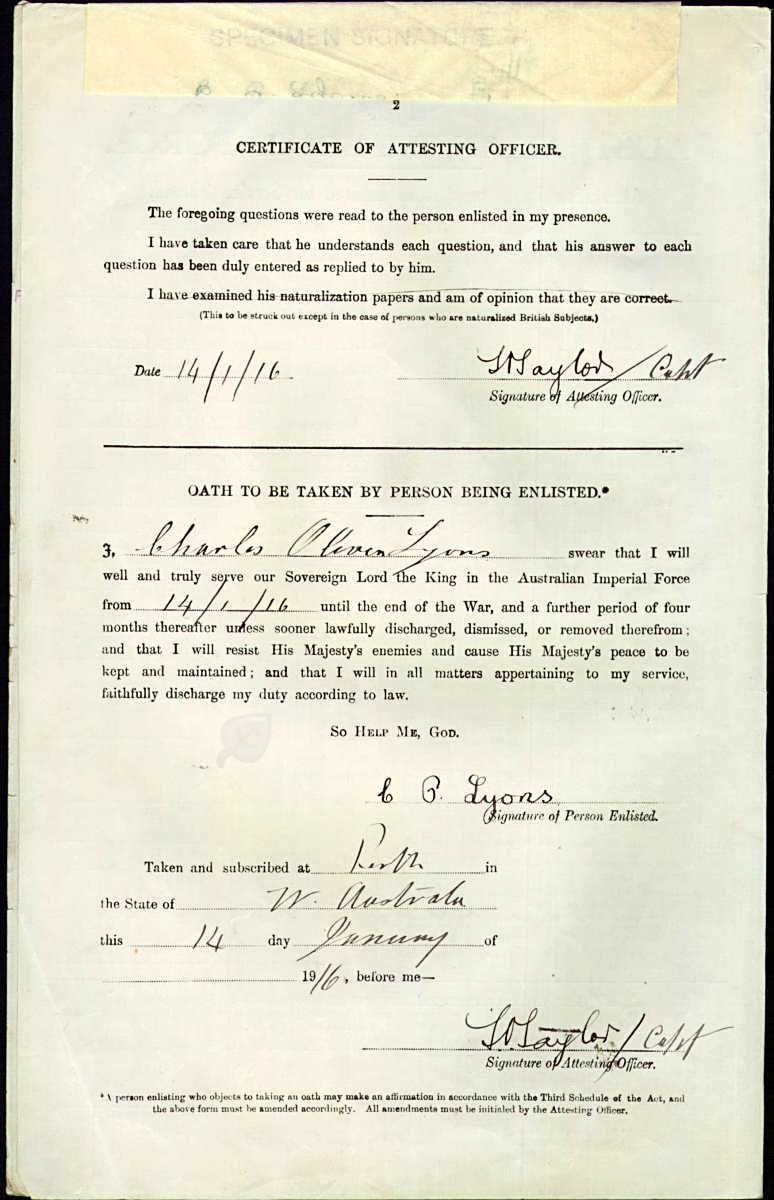 SPECIMEN SIGNATURE
2
CERTIFICATE OF ATTESTING OFFICER.
The foregoing questions were read to the person enlisted in my presence.
I have taken care that he understands each question, and that his answer to each
question has been duly entered as replied to by him.
I have examined his naturalization papers and am of opinion that they are correct.
(This to be struck out except in the case of persons who are naturalized British Subjects.)
Date 14/1/16 Taylor / Capt
Signature of Attesting Officer.
OATH TO BE TAKEN BY PERSON BEING ENLISTED.*
I, Charles Oliver Lyons swear that I will
well and truly serve our Sovereign Lord the King in the Australian Imperial Force
from 14/1/16 until the end of the War, and a further period of four
months thereafter unless sooner lawfully discharged, dismissed, or removed therefrom;
and that I will resist His Majesty's enemies and cause His Majesty's peace to be
kept and maintained; and that I will in all matters appertaining to my service,
faithfully discharge my duty according to law.
So Help Me, God.
C Lyons
Signature of Person Enlisted.
Taken and subscribed at Perth in
the State of W. Australia
this 14 day January of
1916, before me—
Taylor / Capt
Signature of Attesting Officer.
* A person enlisting who objects to taking an oath may make an affirmation in accordance with the Third Schedule of the Act, and
the above form must be amended accordingly. All amendments must be initialed by the Attesting Officer.